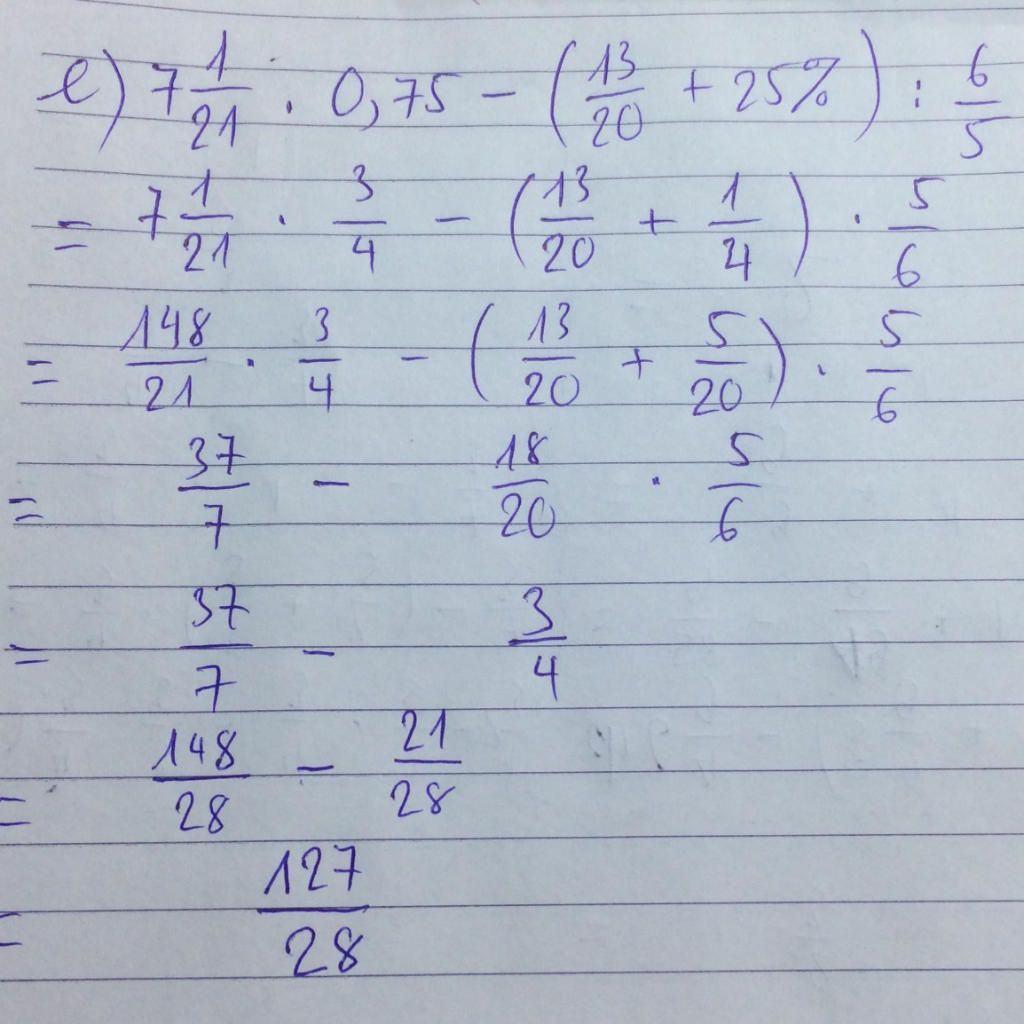 e) 7 1/21 . 0,75 - (13/20 + 25%) : 6/5
= 7 1/21 . 3/4 - (13/20 + 1/4) . 5/6
= 148/21 . 3/4 - (13/20 + 5/20) . 5/6
= 37/7 - 18/20 . 5/6
= 37/7 - 3/4
= 148/28 - 21/28
= 127/28